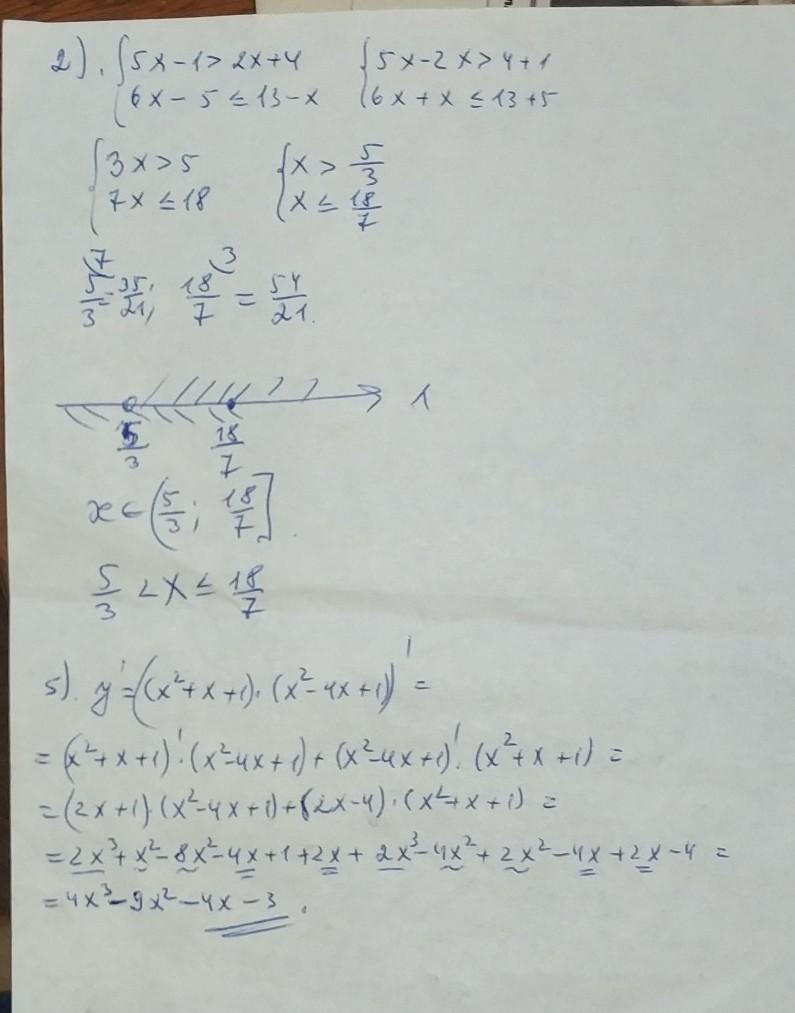 2). { 5x-1>2x+4 { 5x-2x>4+1
{ 6x-5≤13-x { 6x+x≤13+5
{ 3x>5 { x>5/3
{ 7x≤18 { x≤18/7
5/3 \7 = 35/21; 18/7 \3 = 54/21.
5/3 18/7
x∈(5/3; 18/7].
5/3 <x≤ 18/7
5). y'=((x²+x+1)·(x²-4x+1))'=
=(x²+x+1)'·(x²-4x+1)+(x²-4x+1)'·(x²+x+1)=
=(2x+1)·(x²-4x+1)+(2x-4)·(x²+x+1)=
=2x³+x²-8x²-4x+1+2x+2x³-4x²+2x²-4x+2x-4=
=4x³-9x²-4x-3.